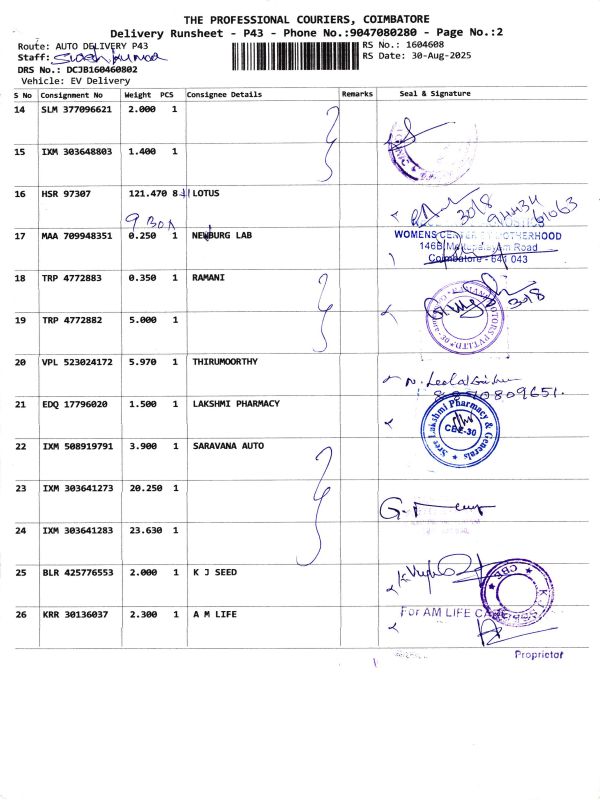 THE PROFESSIONAL COURIERS, COIMBATORE
Delivery Runsheet - P43 - Phone No.:9047080280 - Page No.:2
Route: AUTO DELIVERY P43 RS No.: 1604608
Staff: RS Date: 30-Aug-2025
DRS No.: DCJB160460802
Vehicle: EV Delivery
S No Consignment No Weight PCS Consignee Details Remarks Seal & Signature
14 SLM 377096621 2.000 1
15 IXM 303648803 1.400 1
16 HSR 97307 121.470 8 LOTUS
9 BOX
3018
94434
61063
17 MAA 709948351 0.250 1 NEWBURG LAB
WOMENS CENTER MOTHERHOOD
146B, Mettupalayam Road
Coimbatore - 641 043
18 TRP 4772883 0.350 1 RAMANI
3018
19 TRP 4772882 5.000 1
20 VPL 523024172 5.970 1 THIRUMOORTHY
21 EDQ 17796020 1.500 1 LAKSHMI PHARMACY
Sree Lakshmi Pharmacy & Generals
CBE-30
22 IXM 508919791 3.900 1 SARAVANA AUTO
23 IXM 303641273 20.250 1
24 IXM 303641283 23.630 1
25 BLR 425776553 2.000 1 K J SEED
CBE
26 KRR 30136037 2.300 1 A M LIFE
For AM LIFE
Proprietor